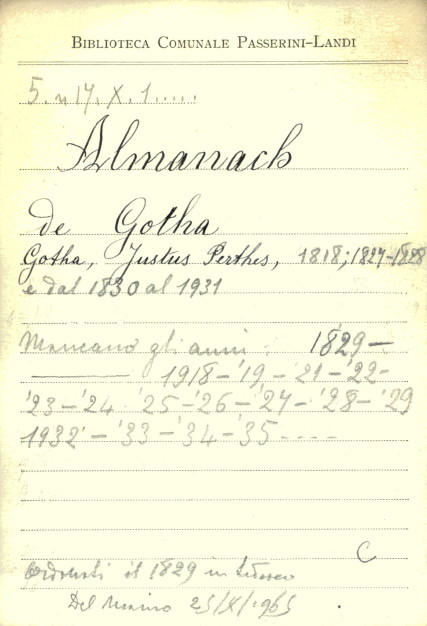 BIBLIOTECA COMUNALE PASSERINI-LANDI
5. n 17. X. 1.....
Almanach
de Gotha
Gotha, Justus Perthes, 1818; 1827-1828
e dal 1830 al 1931
Mancano gli anni: 1829 —
— 1918 - '19 - '21 - '22 -
'23 - '24 '25 - '26 - '27 - '28 - '29
1932 - '33 - '34 - '35 - - - -
C
il 1829 in tedesco
Del 25/X/1965